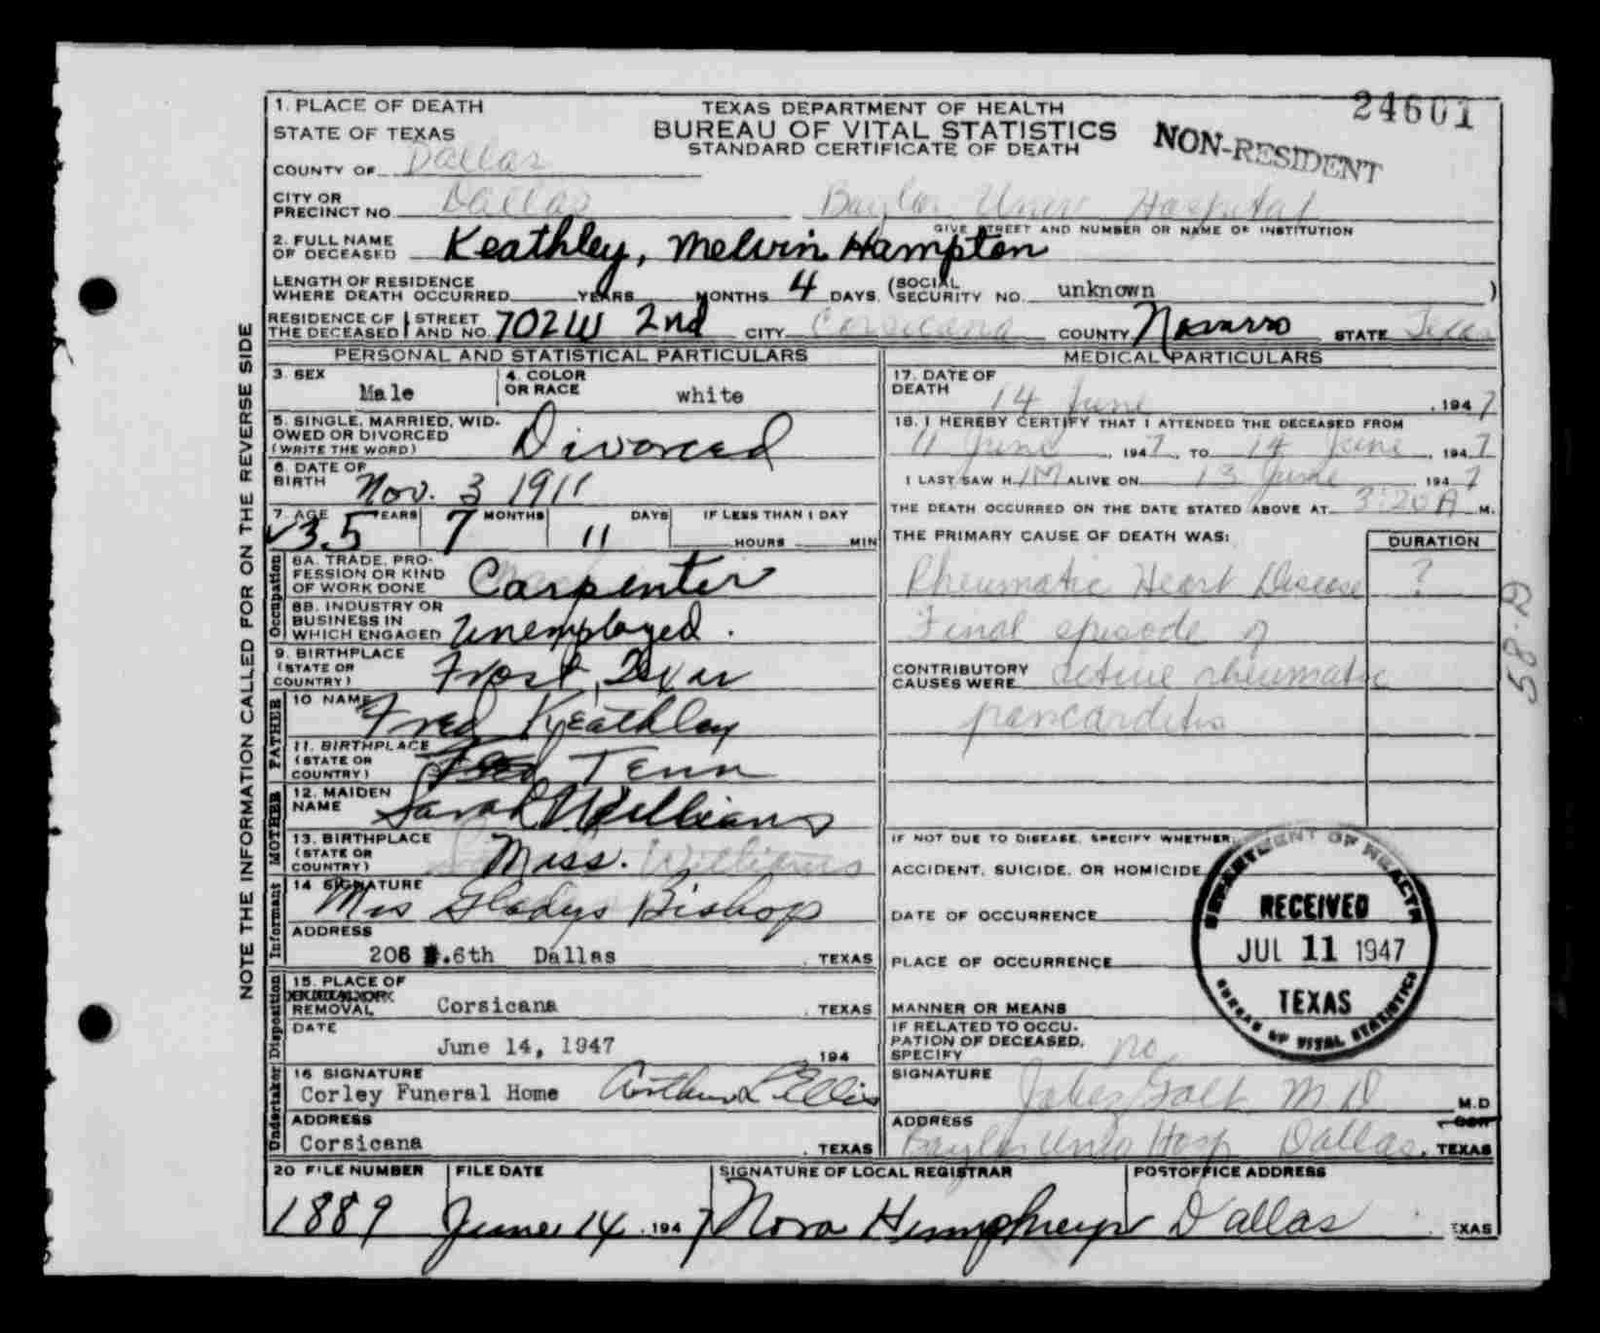 24601
1. PLACE OF DEATH
STATE OF TEXAS
COUNTY OF Dallas
TEXAS DEPARTMENT OF HEALTH
BUREAU OF VITAL STATISTICS
STANDARD CERTIFICATE OF DEATH
NON-RESIDENT
CITY OR
PRECINCT NO. Dallas Baylor Univ Hospital
GIVE STREET AND NUMBER OR NAME OF INSTITUTION
2. FULL NAME
OF DECEASED Keathley, Melvin Hampton
LENGTH OF RESIDENCE
WHERE DEATH OCCURRED YEARS MONTHS 4 DAYS. (SOCIAL SECURITY NO. unknown )
RESIDENCE OF THE DECEASED STREET AND NO. 702 W 2nd CITY Corsicana COUNTY Navarro STATE Texas
PERSONAL AND STATISTICAL PARTICULARS
3. SEX Male
4. COLOR OR RACE white
5. SINGLE, MARRIED, WID-
OWED OR DIVORCED
(WRITE THE WORD) Divorced
6. DATE OF
BIRTH Nov. 3 1911
7. AGE 35 YEARS 7 MONTHS 11 DAYS IF LESS THAN 1 DAY
HOURS MIN
Occupation
8A. TRADE, PRO-
FESSION OR KIND
OF WORK DONE Carpenter
8B. INDUSTRY OR
BUSINESS IN
WHICH ENGAGED Unemployed.
9. BIRTHPLACE
(STATE OR
COUNTRY) Frost, Texas
FATHER
10 NAME Fred Keathley
11. BIRTHPLACE
(STATE OR
COUNTRY) Tenn
MOTHER
12. MAIDEN
NAME Sarah Williams
13. BIRTHPLACE
(STATE OR
COUNTRY) Miss. Williams
Informant
14 SIGNATURE
Mrs Gladys Bishop
ADDRESS
206 .6th Dallas , TEXAS
Disposition
15. PLACE OF
REMOVAL Corsicana , TEXAS
DATE
June 14, 1947 194
Undertaker
16 SIGNATURE
Corley Funeral Home Arthur L Ellis
ADDRESS
Corsicana , TEXAS
MEDICAL PARTICULARS
17. DATE OF
DEATH 14 June , 1947
18. I HEREBY CERTIFY THAT I ATTENDED THE DECEASED FROM
11 June , 1947, TO 14 June , 1947
I LAST SAW HIM ALIVE ON 13 June , 1947
THE DEATH OCCURRED ON THE DATE STATED ABOVE AT 3:20 A M.
THE PRIMARY CAUSE OF DEATH WAS: DURATION
Rheumatic Heart Disease ?
Final episode of
CONTRIBUTORY
CAUSES WERE active rheumatic
pancarditis
IF NOT DUE TO DISEASE, SPECIFY WHETHER
ACCIDENT, SUICIDE, OR HOMICIDE
DATE OF OCCURRENCE
PLACE OF OCCURRENCE
MANNER OR MEANS
IF RELATED TO OCCU-
PATION OF DECEASED,
SPECIFY no
SIGNATURE
Jabez Galt M D M.D
ADDRESS
Baylor Univ Hosp Dallas, TEXAS
DEPARTMENT OF HEALTH
RECEIVED
JUL 11 1947
TEXAS
BUREAU OF VITAL STATISTICS
20 FILE NUMBER FILE DATE SIGNATURE OF LOCAL REGISTRAR POSTOFFICE ADDRESS
1889 June 14, 1947 Nora Humphreys Dallas EXAS
NOTE THE INFORMATION CALLED FOR ON THE REVERSE SIDE